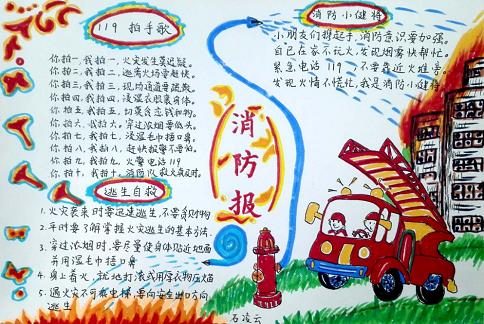 119 拍手歌
你拍一,我拍一,火灾发生莫迟疑。
你拍二,我拍二,逃离火场要赶快。
你拍三,我拍三,现场通道要疏散。
你拍四,我拍四,浸湿衣服裹身体。
你拍五,我拍五,切莫贪恋钱和物。
你拍六,我拍六,穿过浓烟要低头。
你拍七,我拍七,浸湿毛巾捂口鼻。
你拍八,我拍八,赶快报警不要怕。
你拍九,我拍九,火警电话119
你拍十,我拍十,消防队救火最及时。
逃生自救
1、火灾袭来时要迅速逃生,不要贪财物
2、平时要了解掌握火灾逃生的基本方法.
3、穿过浓烟时,要尽量使身体贴近地面
并用湿毛巾捂口鼻
4、身上着火,就地打滚或用厚衣物压火焰
5、遇火灾不可乘电梯,要向安全出口方向
逃生
消防报
消防小健将
小朋友们举起手,消防意识要加强。
自己在家不玩火,发现烟雾快帮忙。
紧急电话119,不要靠近火难旁。
发现火情不慌忙,我是消防小健将。
石凌云